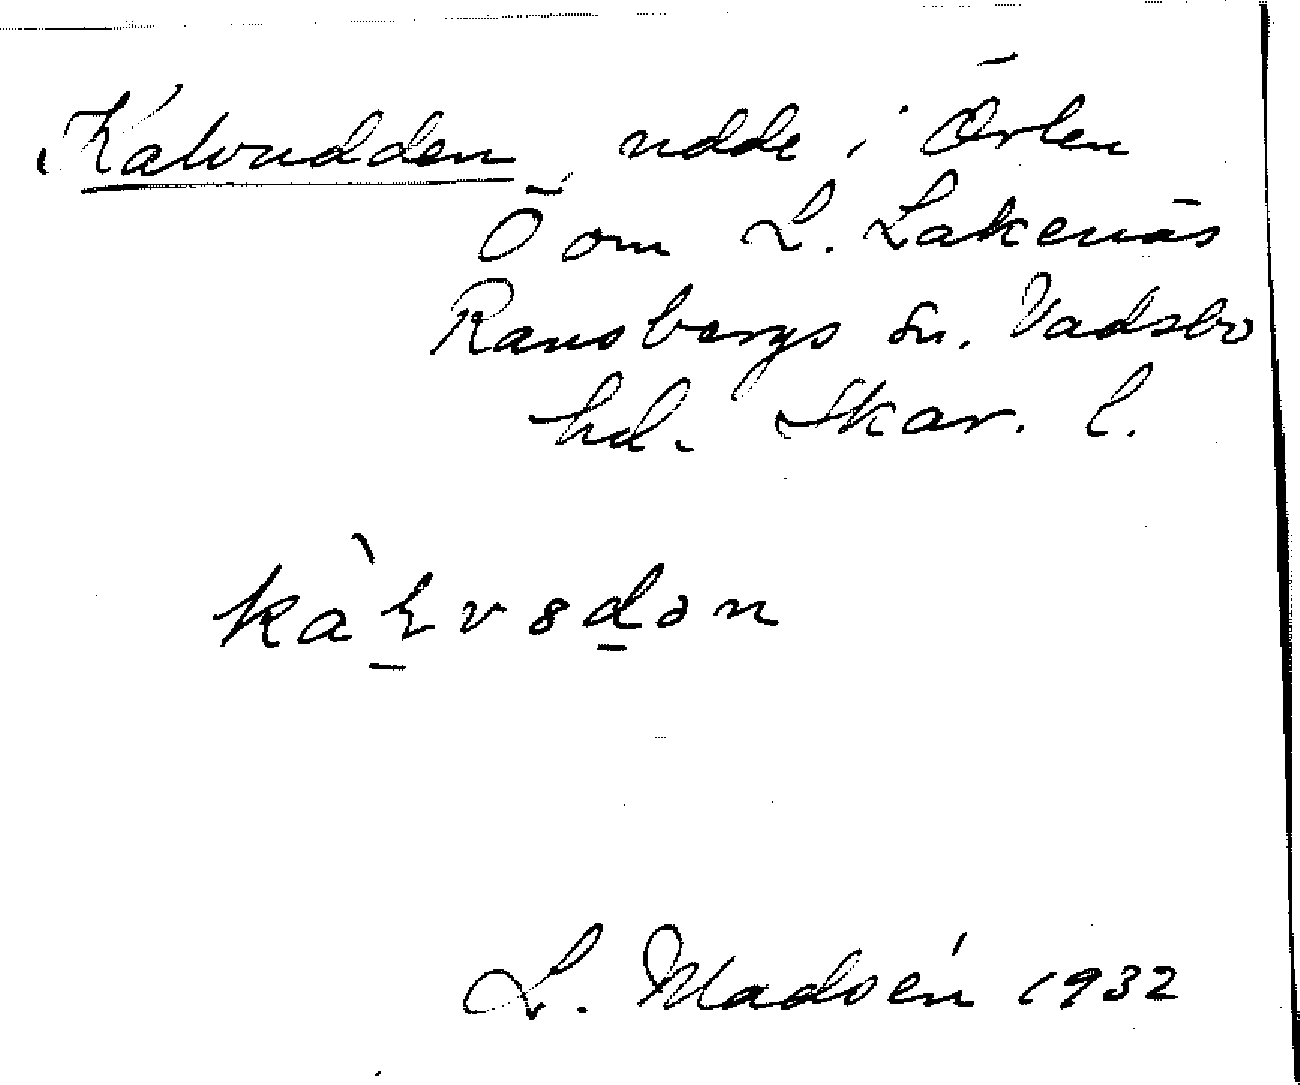 Kalvudden udde i Örlen
Ö om L. Lakenäs
Ransbergs sn. Vadsbo
hd. Skar. l.
L. Madsén 1932